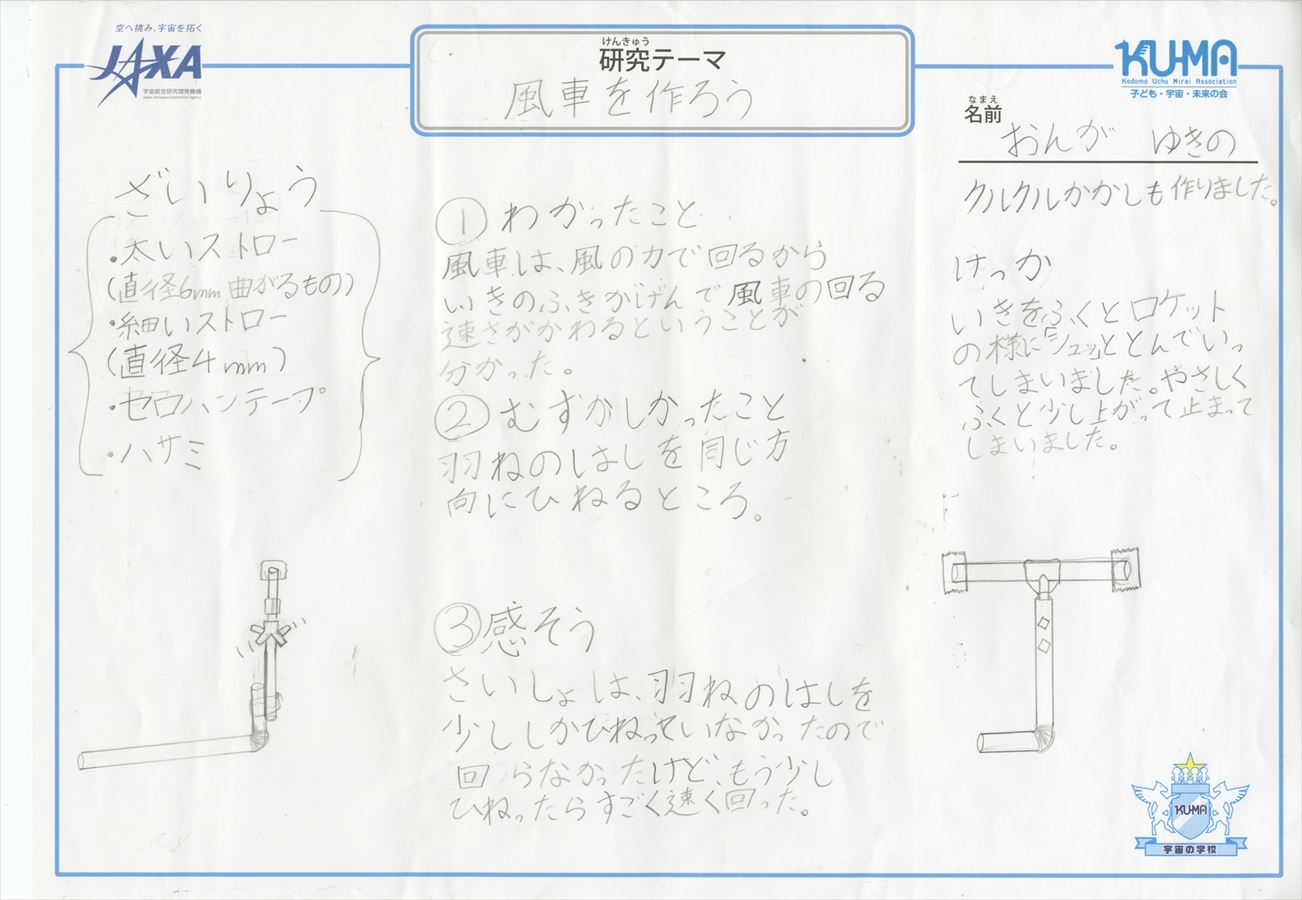 空へ挑み、宇宙を拓く
JAXA
宇宙航空研究開発機構
Japan Aerospace Exploration Agency
けんきゅう
研究テーマ
風車を作ろう
KU-MA
Kodomo Uchu Mirai Association
子ども・宇宙・未来の会
なまえ
名前
おんが ゆきの
ざいりょう
・太いストロー
(直径6mm曲がるもの)
・細いストロー
(直径4mm)
・セロハンテープ
・ハサミ
① わかったこと
風車は、風の力で回るから
いきのふきかげんで風車の回る
速さがかわるということが
分かった。
② むずかしかったこと
羽ねのはしを同じ方
向にひねるところ。
③ 感そう
さいしょは、羽ねのはしを
少ししかひねっていなかったので
回つらなかったけど、もう少し
ひねったらすごく速く回った。
クルクルかかしも作りました。
けっか
いきをふくとロケット
の様に「シュッ」ととんでいっ
てしまいました。やさしく
ふくと少し上がって止まって
しまいました。
KU-MA
宇宙の学校